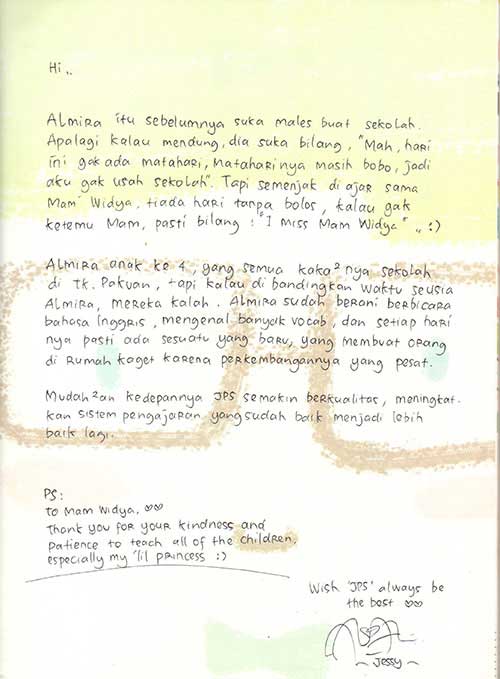 Hi ,,
Almira itu sebelumnya suka males buat sekolah.
Apalagi kalau mendung, dia suka bilang, "Mah, hari
ini gak ada matahari, Mataharinya masih bobo, jadi
aku gak usah sekolah". Tapi semenjak di ajar sama
Mam Widya, tiada hari tanpa bolos, kalau gak
ketemu Mam, pasti bilang : "I Miss Mam Widya" ,, :)
Almira anak ke 4, yang semua kaka²nya sekolah
di Tk. Pakuan, tapi kalau di bandingkan waktu seusia
Almira, mereka kalah. Almira sudah berani berbicara
bahasa Inggris, mengenal banyak vocab, dan setiap hari
nya pasti ada sesuatu yang baru, yang membuat orang
di Rumah kaget karena perkembangannya yang pesat.
Mudah²an kedepannya JPS semakin berkualitas, meningkat-
kan sistem pengajaran yang sudah baik menjadi lebih
baik lagi.
PS:
To Mam Widya, ♡♡
Thank you for your kindness and
patience to teach all of the children,
especially my 'lil princess :)
Wish 'JPS' always be
the best ♡♡
~ Jessy ~